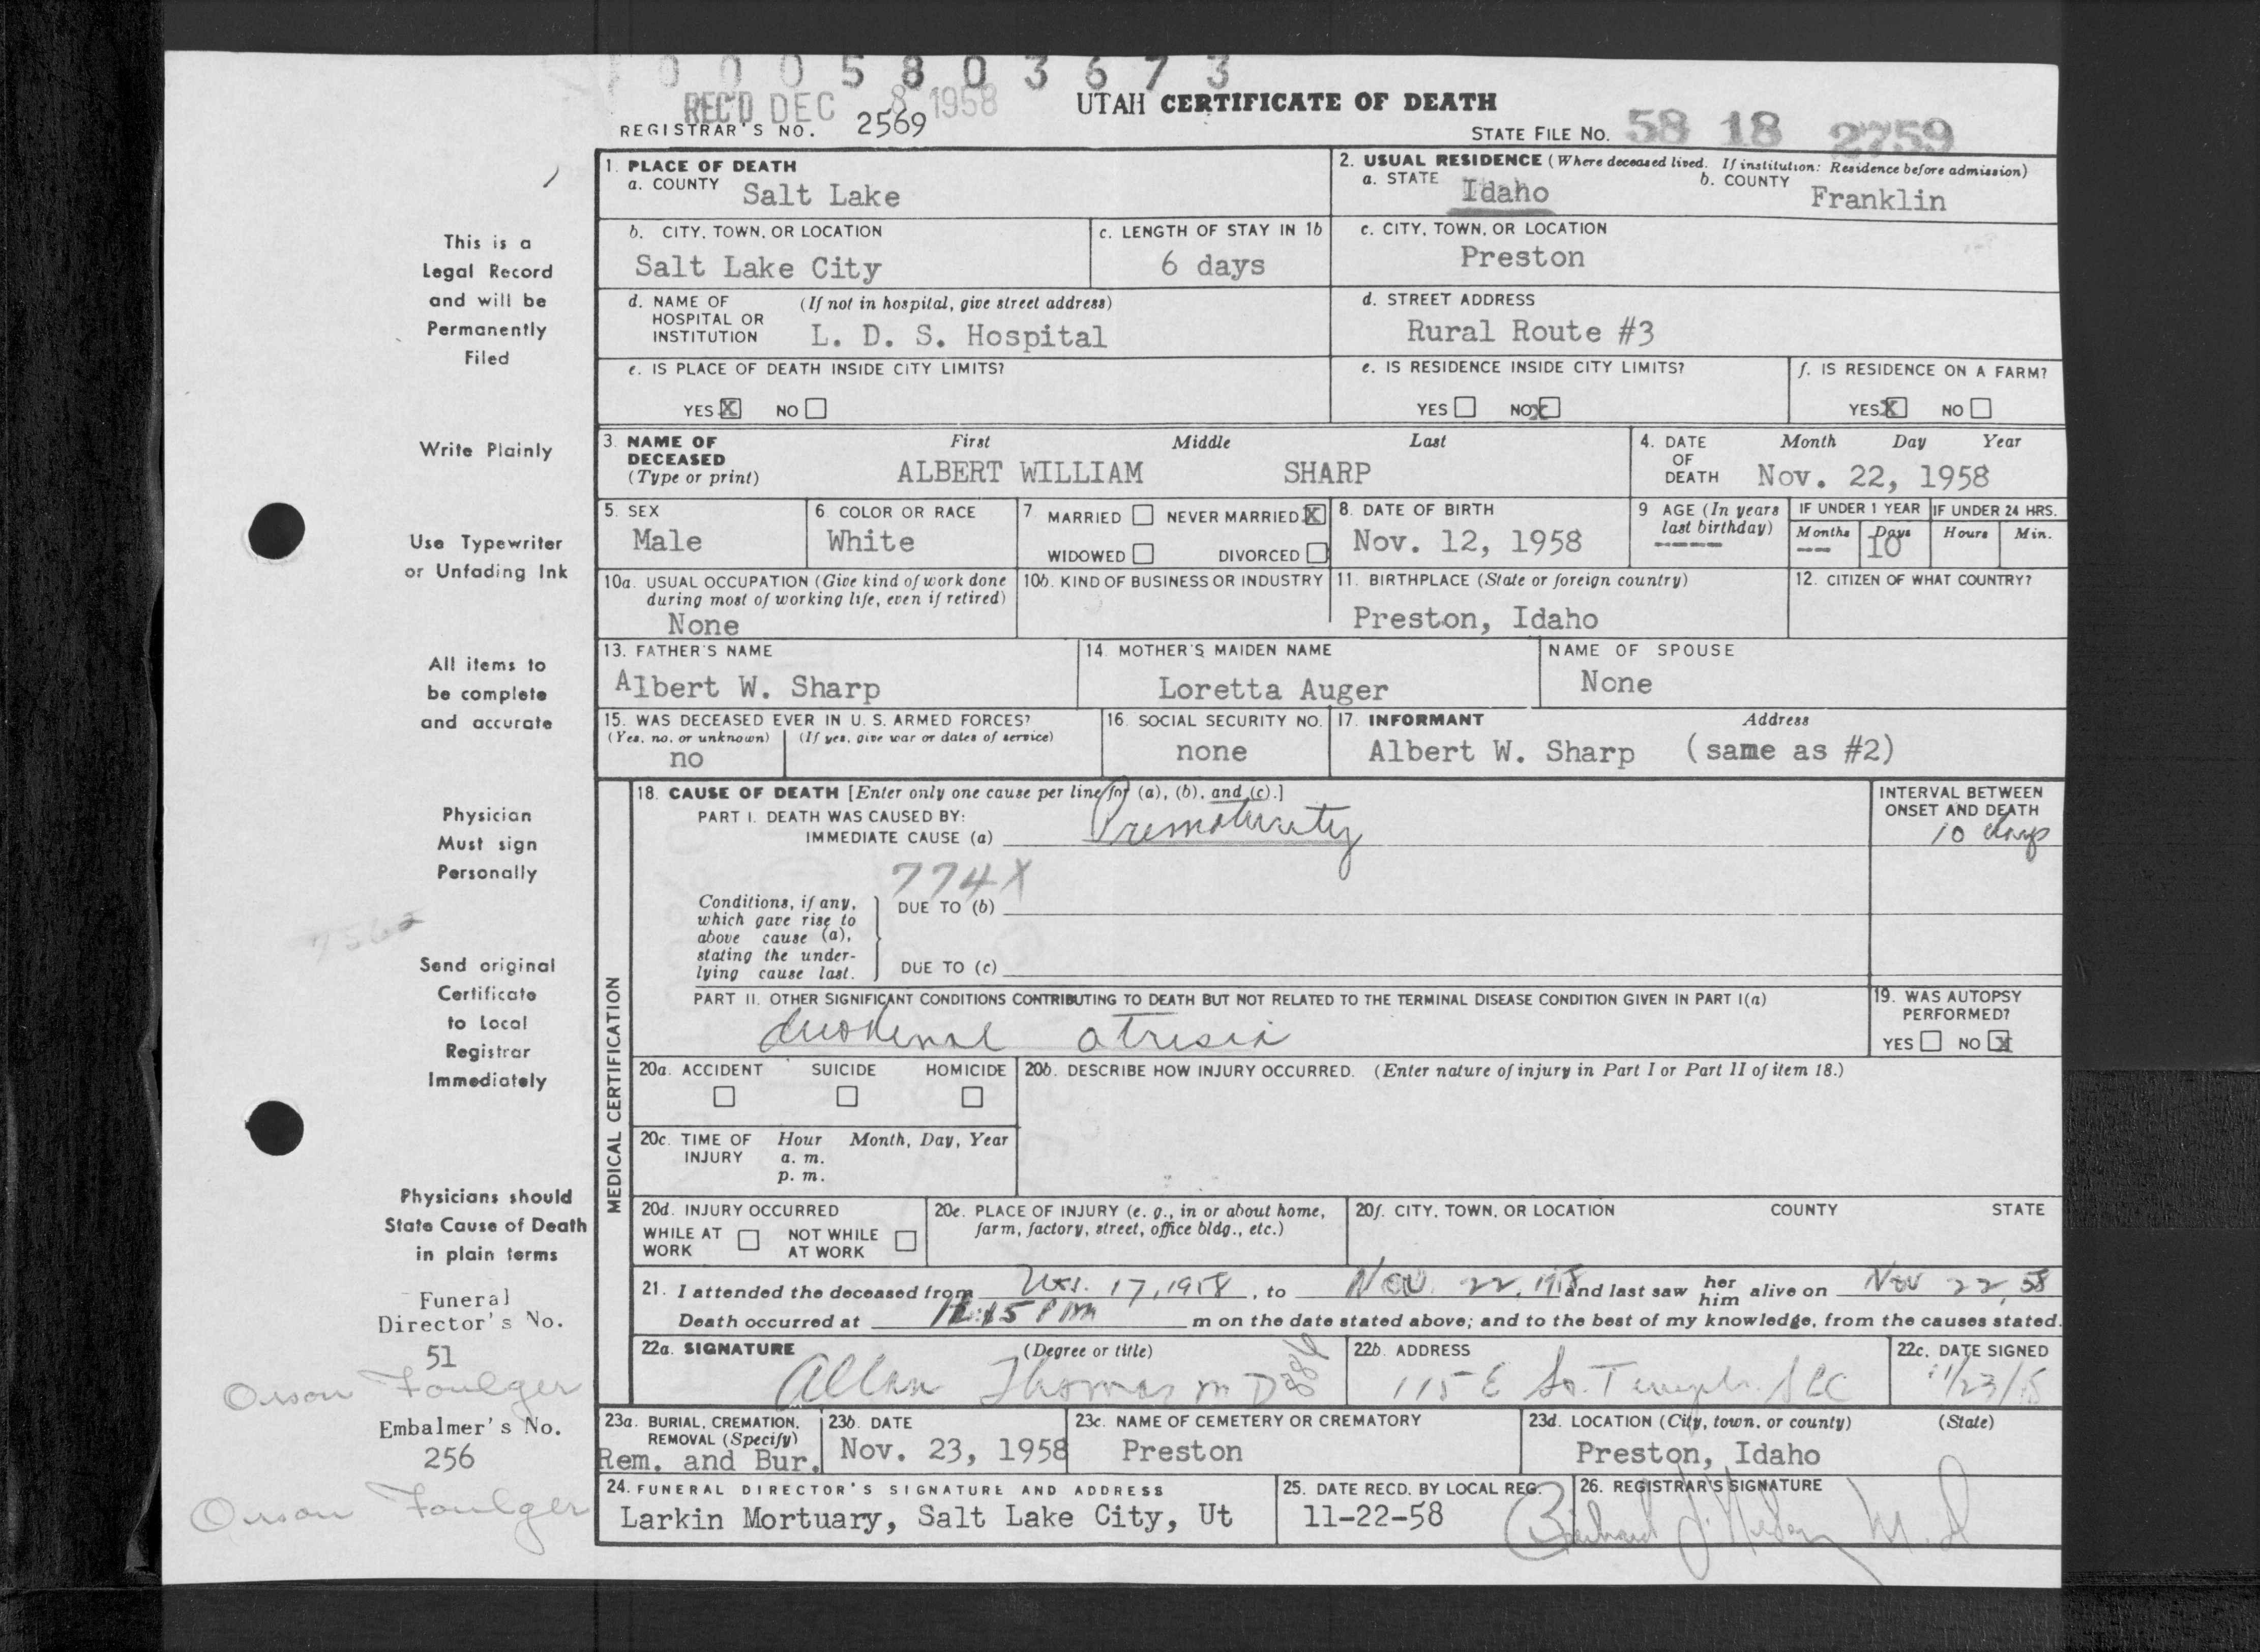 0 0 0 5 8 0 3 6 7 3
REC'D DEC 8 1958
UTAH CERTIFICATE OF DEATH
REGISTRAR'S NO. 2569
STATE FILE NO. 58 18 2759
1. PLACE OF DEATH
a. COUNTY Salt Lake
2. USUAL RESIDENCE (Where deceased lived. If institution: Residence before admission)
a. STATE Idaho b. COUNTY Franklin
b. CITY, TOWN, OR LOCATION Salt Lake City
c. LENGTH OF STAY IN 1b 6 days
c. CITY, TOWN, OR LOCATION Preston
d. NAME OF HOSPITAL OR INSTITUTION (If not in hospital, give street address) L. D. S. Hospital
d. STREET ADDRESS Rural Route #3
e. IS PLACE OF DEATH INSIDE CITY LIMITS?
YES X NO
e. IS RESIDENCE INSIDE CITY LIMITS?
YES NO X
f. IS RESIDENCE ON A FARM?
YES X NO
3. NAME OF DECEASED (Type or print) First Middle Last
ALBERT WILLIAM SHARP
4. DATE OF DEATH Month Day Year
Nov. 22, 1958
5. SEX Male
6. COLOR OR RACE White
7. MARRIED NEVER MARRIED X
WIDOWED DIVORCED
8. DATE OF BIRTH Nov. 12, 1958
9 AGE (In years last birthday) -----
IF UNDER 1 YEAR Months --- Days 10
IF UNDER 24 HRS. Hours Min.
10a. USUAL OCCUPATION (Give kind of work done during most of working life, even if retired) None
10b. KIND OF BUSINESS OR INDUSTRY
11. BIRTHPLACE (State or foreign country) Preston, Idaho
12. CITIZEN OF WHAT COUNTRY?
13. FATHER'S NAME Albert W. Sharp
14. MOTHER'S MAIDEN NAME Loretta Auger
NAME OF SPOUSE None
15. WAS DECEASED EVER IN U. S. ARMED FORCES?
(Yes, no, or unknown) (If yes, give war or dates of service)
no
16. SOCIAL SECURITY NO. none
17. INFORMANT Address
Albert W. Sharp (same as #2)
MEDICAL CERTIFICATION
18. CAUSE OF DEATH [Enter only one cause per line for (a), (b), and (c).]
PART I. DEATH WAS CAUSED BY:
IMMEDIATE CAUSE (a) Prematurity
INTERVAL BETWEEN ONSET AND DEATH
10 days
774X
Conditions, if any, which gave rise to above cause (a), stating the underlying cause last.
DUE TO (b)
DUE TO (c)
PART II. OTHER SIGNIFICANT CONDITIONS CONTRIBUTING TO DEATH BUT NOT RELATED TO THE TERMINAL DISEASE CONDITION GIVEN IN PART I(a)
duodenal atresia
19. WAS AUTOPSY PERFORMED?
YES NO X
20a. ACCIDENT SUICIDE HOMICIDE
20b. DESCRIBE HOW INJURY OCCURRED. (Enter nature of injury in Part I or Part II of item 18.)
20c. TIME OF INJURY Hour Month, Day, Year
a. m.
p. m.
20d. INJURY OCCURRED
WHILE AT WORK NOT WHILE AT WORK
20e. PLACE OF INJURY (e. g., in or about home, farm, factory, street, office bldg., etc.)
20f. CITY, TOWN, OR LOCATION COUNTY STATE
21. I attended the deceased from Nov. 17, 1958, to Nov. 22, 1958 and last saw her him alive on Nov 22, 58
Death occurred at PM m on the date stated above; and to the best of my knowledge, from the causes stated.
22a. SIGNATURE (Degree or title)
Allan Thomas M D
22b. ADDRESS 115 E So. Temple SLC
22c. DATE SIGNED 11/23/58
23a. BURIAL, CREMATION, REMOVAL (Specify) Rem. and Bur.
23b. DATE Nov. 23, 1958
23c. NAME OF CEMETERY OR CREMATORY Preston
23d. LOCATION (City, town, or county) (State)
Preston, Idaho
24. FUNERAL DIRECTOR'S SIGNATURE AND ADDRESS
Larkin Mortuary, Salt Lake City, Ut
25. DATE RECD. BY LOCAL REG. 11-22-58
26. REGISTRAR'S SIGNATURE
M.D
This is a
Legal Record
and will be
Permanently
Filed
Write Plainly
Use Typewriter
or Unfading Ink
All items to
be complete
and accurate
Physician
Must sign
Personally
Send original
Certificate
to Local
Registrar
Immediately
Physicians should
State Cause of Death
in plain terms
Funeral
Director's No.
51
Orson Foulger
Embalmer's No.
256
Orson Foulger